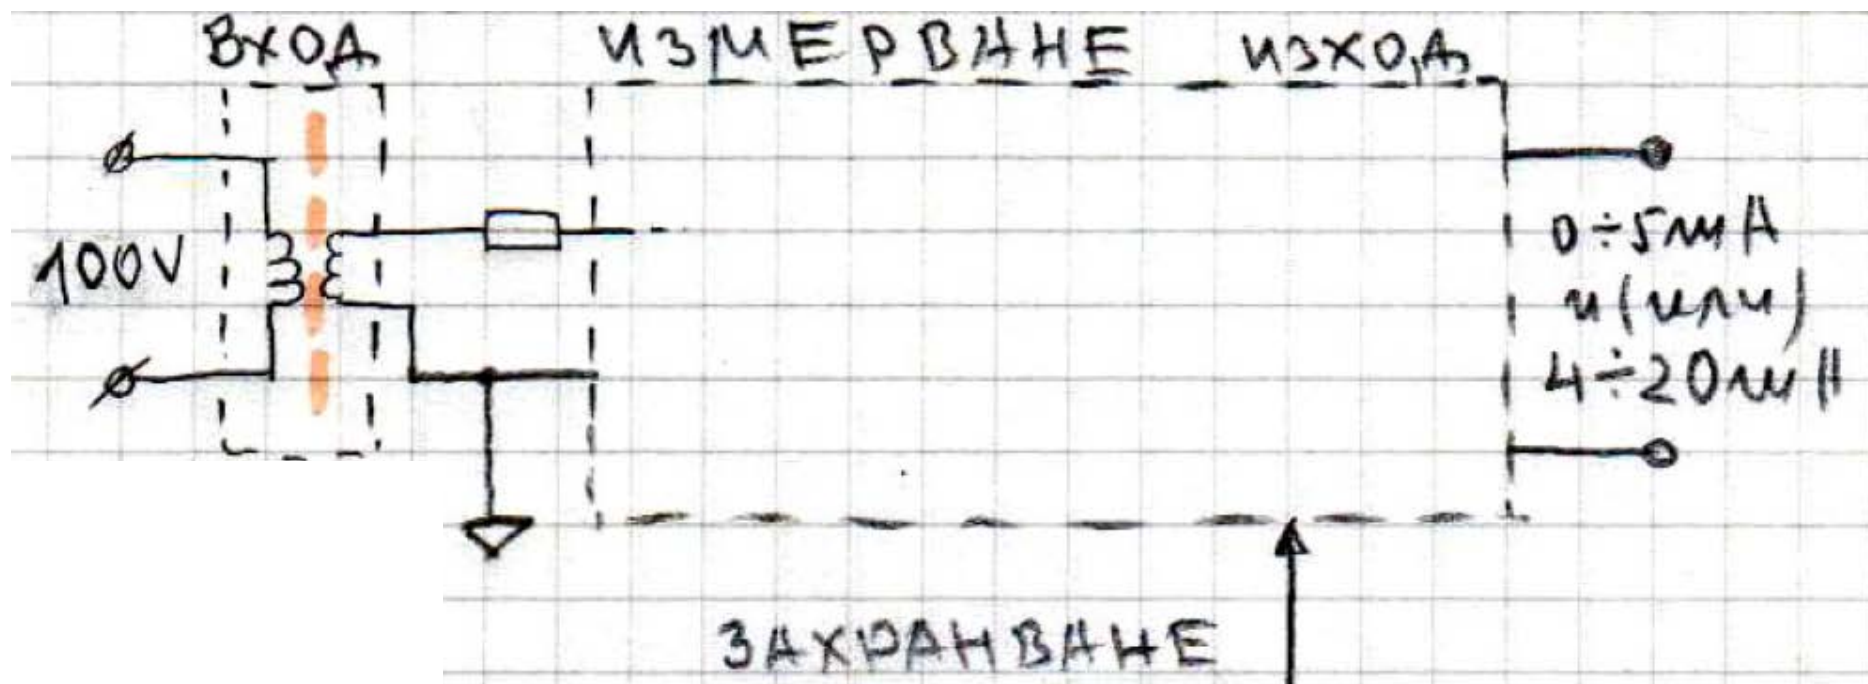 ВХОД
ИЗМЕРВАНЕ ИЗХОД
100V
0÷5mA
и (или)
4÷20mA
ЗАХРАНВАНЕ